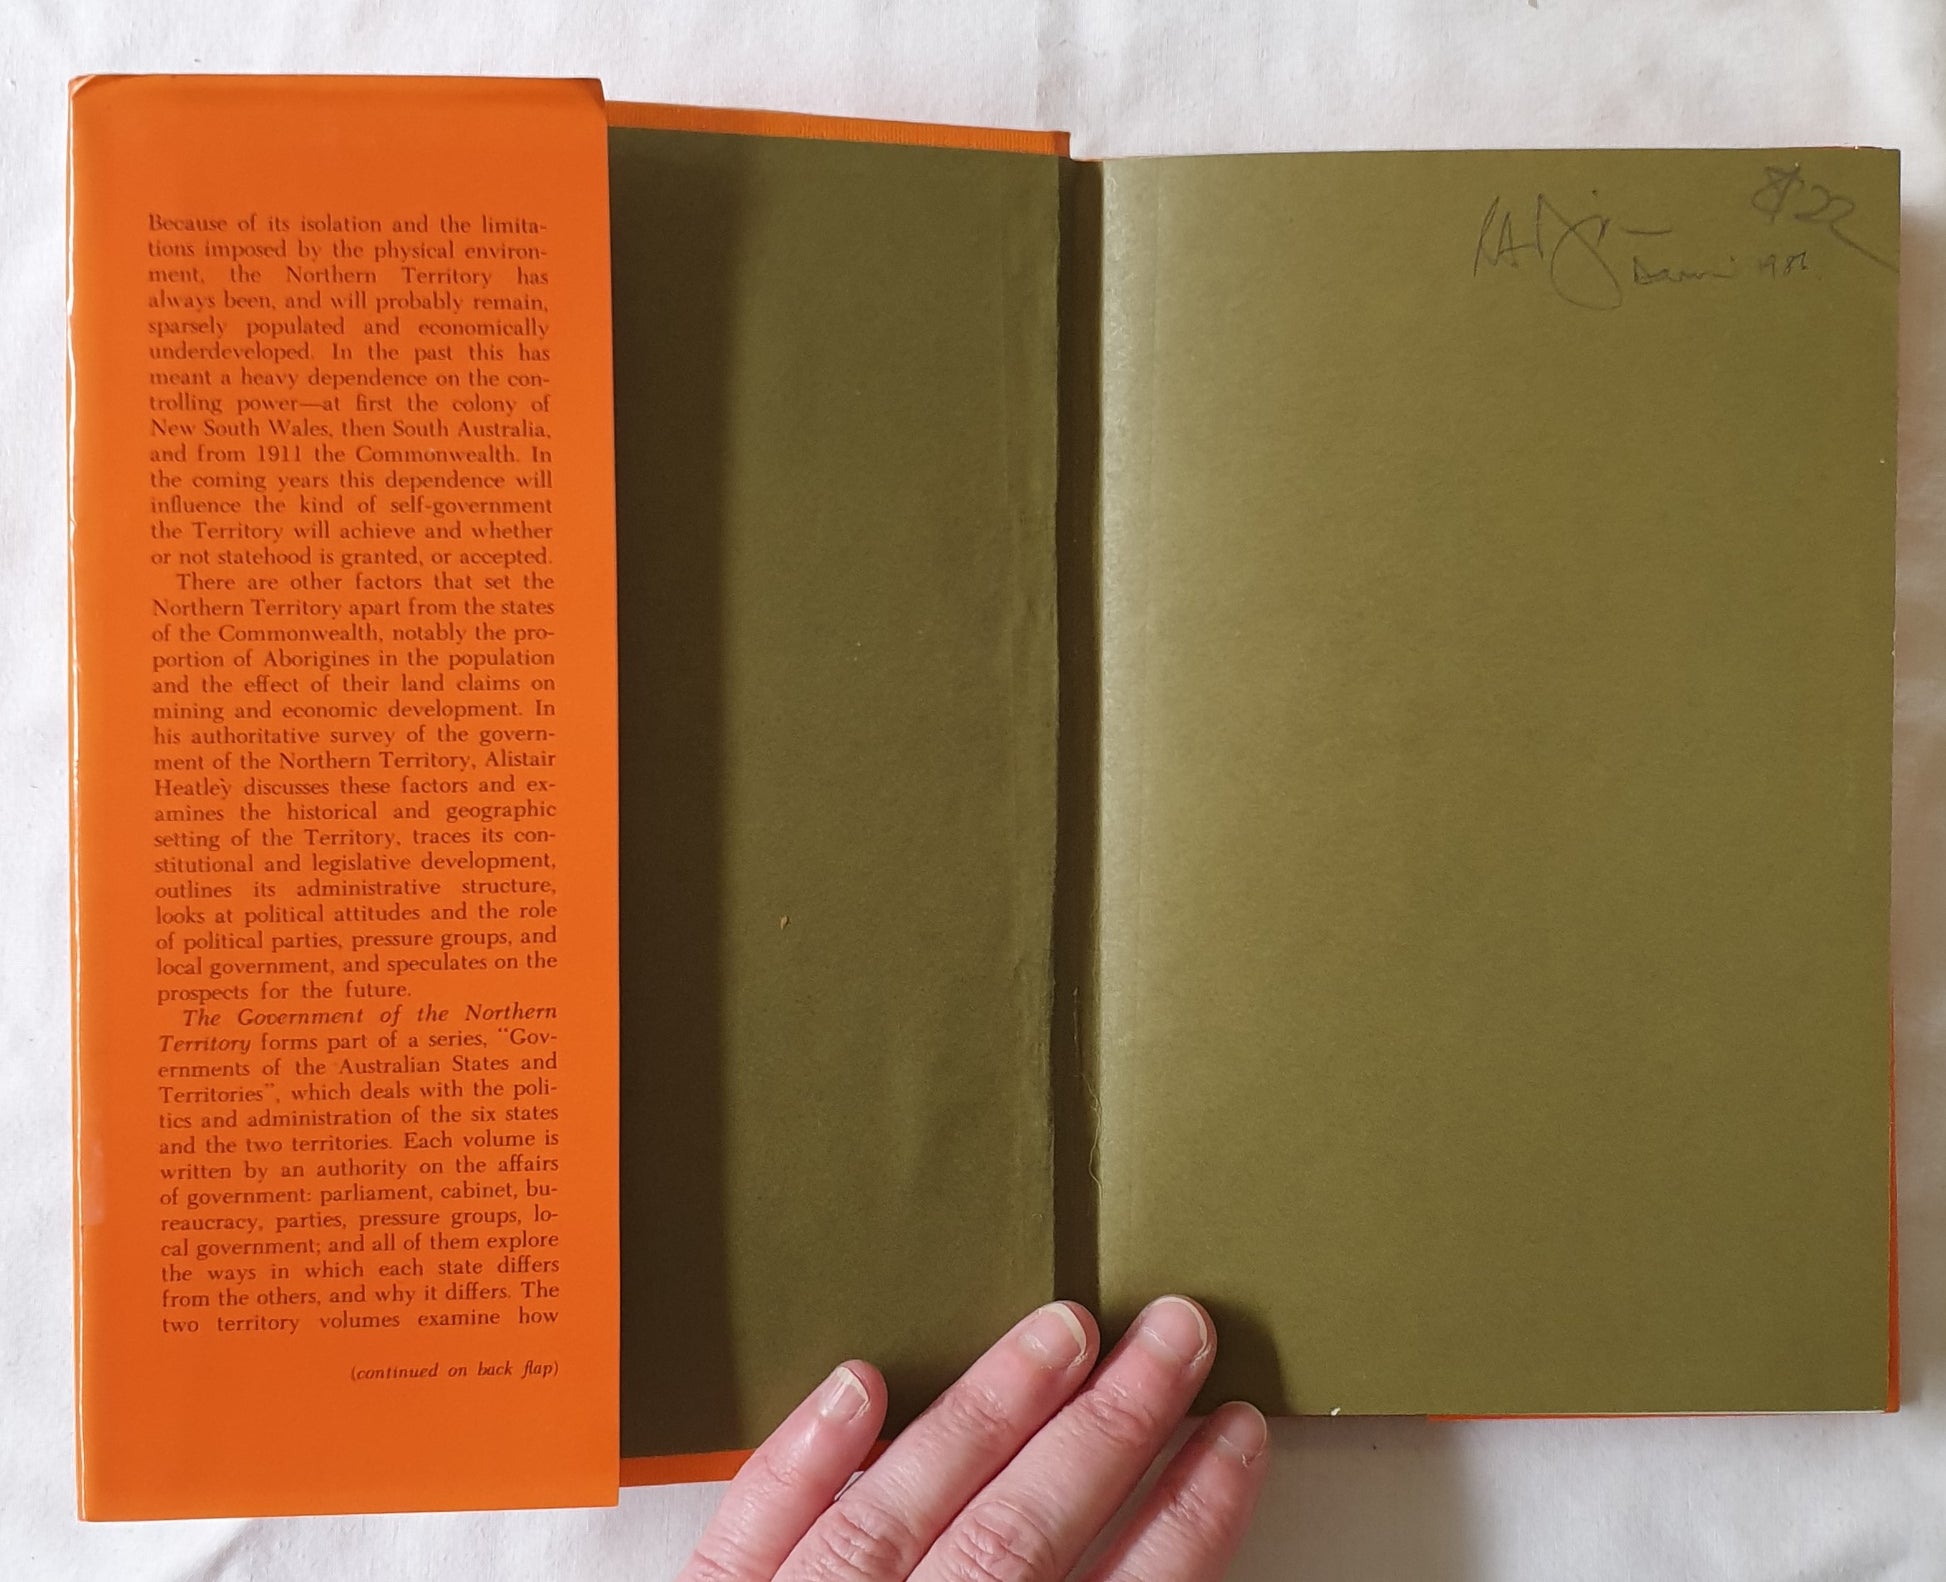 Because of its isolation and the limita-
tions imposed by the physical environ-
ment, the Northern Territory has
always been, and will probably remain,
sparsely populated and economically
underdeveloped. In the past this has
meant a heavy dependence on the con-
trolling power—at first the colony of
New South Wales, then South Australia,
and from 1911 the Commonwealth. In
the coming years this dependence will
influence the kind of self-government
the Territory will achieve and whether
or not statehood is granted, or accepted.
There are other factors that set the
Northern Territory apart from the states
of the Commonwealth, notably the pro-
portion of Aborigines in the population
and the effect of their land claims on
mining and economic development. In
his authoritative survey of the govern-
ment of the Northern Territory, Alistair
Heatley discusses these factors and ex-
amines the historical and geographic
setting of the Territory, traces its con-
stitutional and legislative development,
outlines its administrative structure,
looks at political attitudes and the role
of political parties, pressure groups, and
local government, and speculates on the
prospects for the future.
The Government of the Northern
Territory forms part of a series, "Gov-
ernments of the Australian States and
Territories", which deals with the poli-
tics and administration of the six states
and the two territories. Each volume is
written by an authority on the affairs
of government: parliament, cabinet, bu-
reaucracy, parties, pressure groups, lo-
cal government; and all of them explore
the ways in which each state differs
from the others, and why it differs. The
two territory volumes examine how
(continued on back flap)
$22